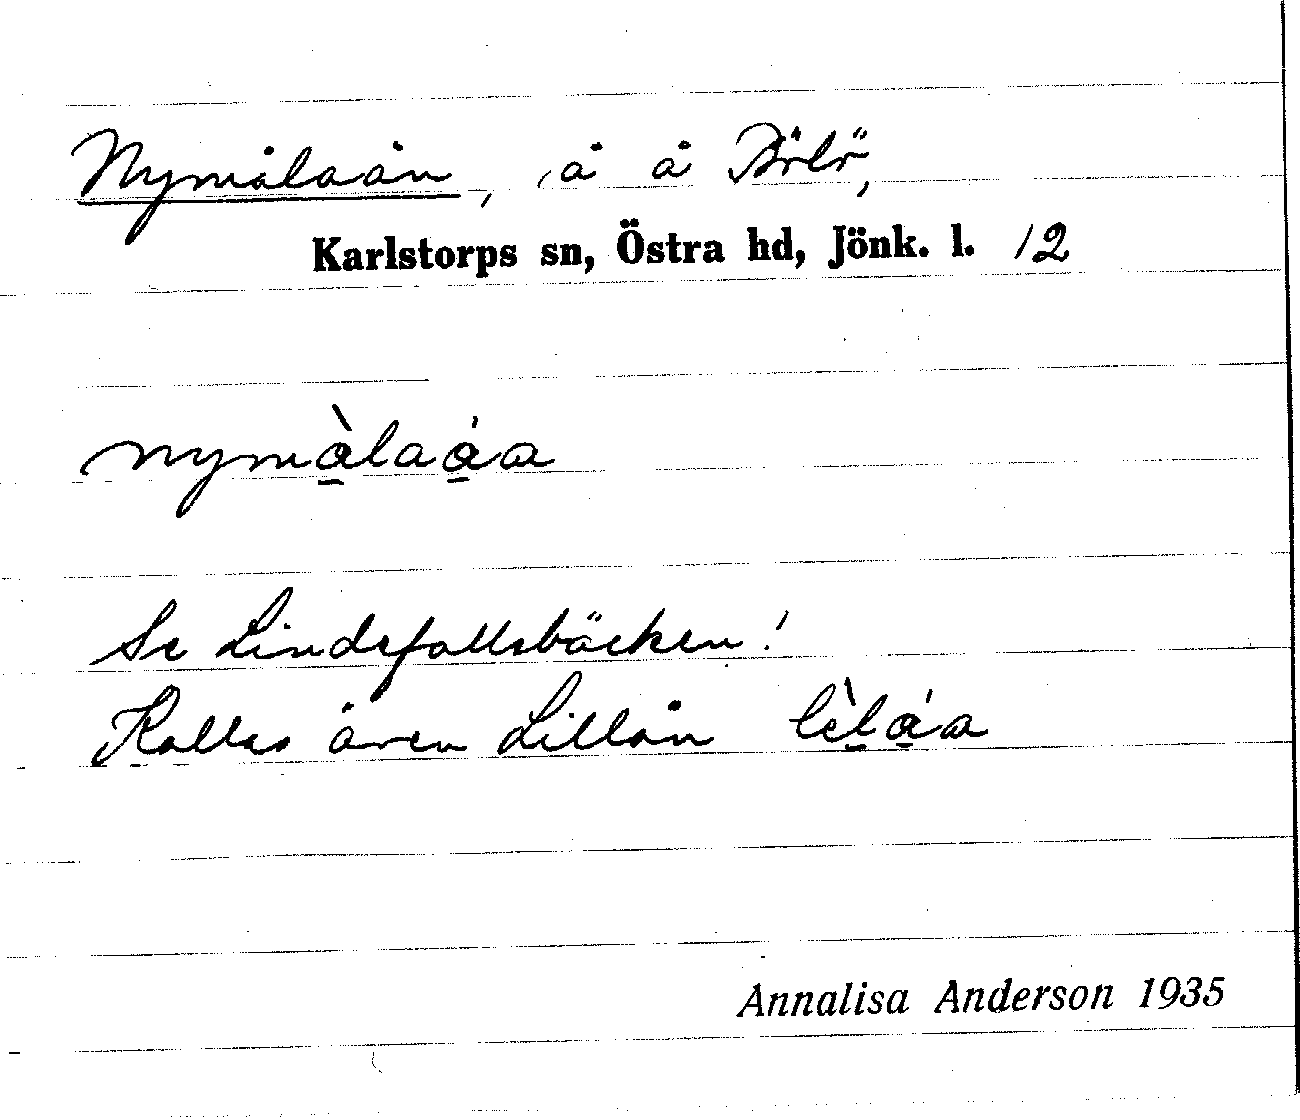 Nymålaån, å å Börlö,
Karlstorps sn, Östra hd, Jönk. l. 12
nymàlaáa
Se Lindefallsbäcken!
Kallas även Lillån lìláa
Annalisa Anderson 1935